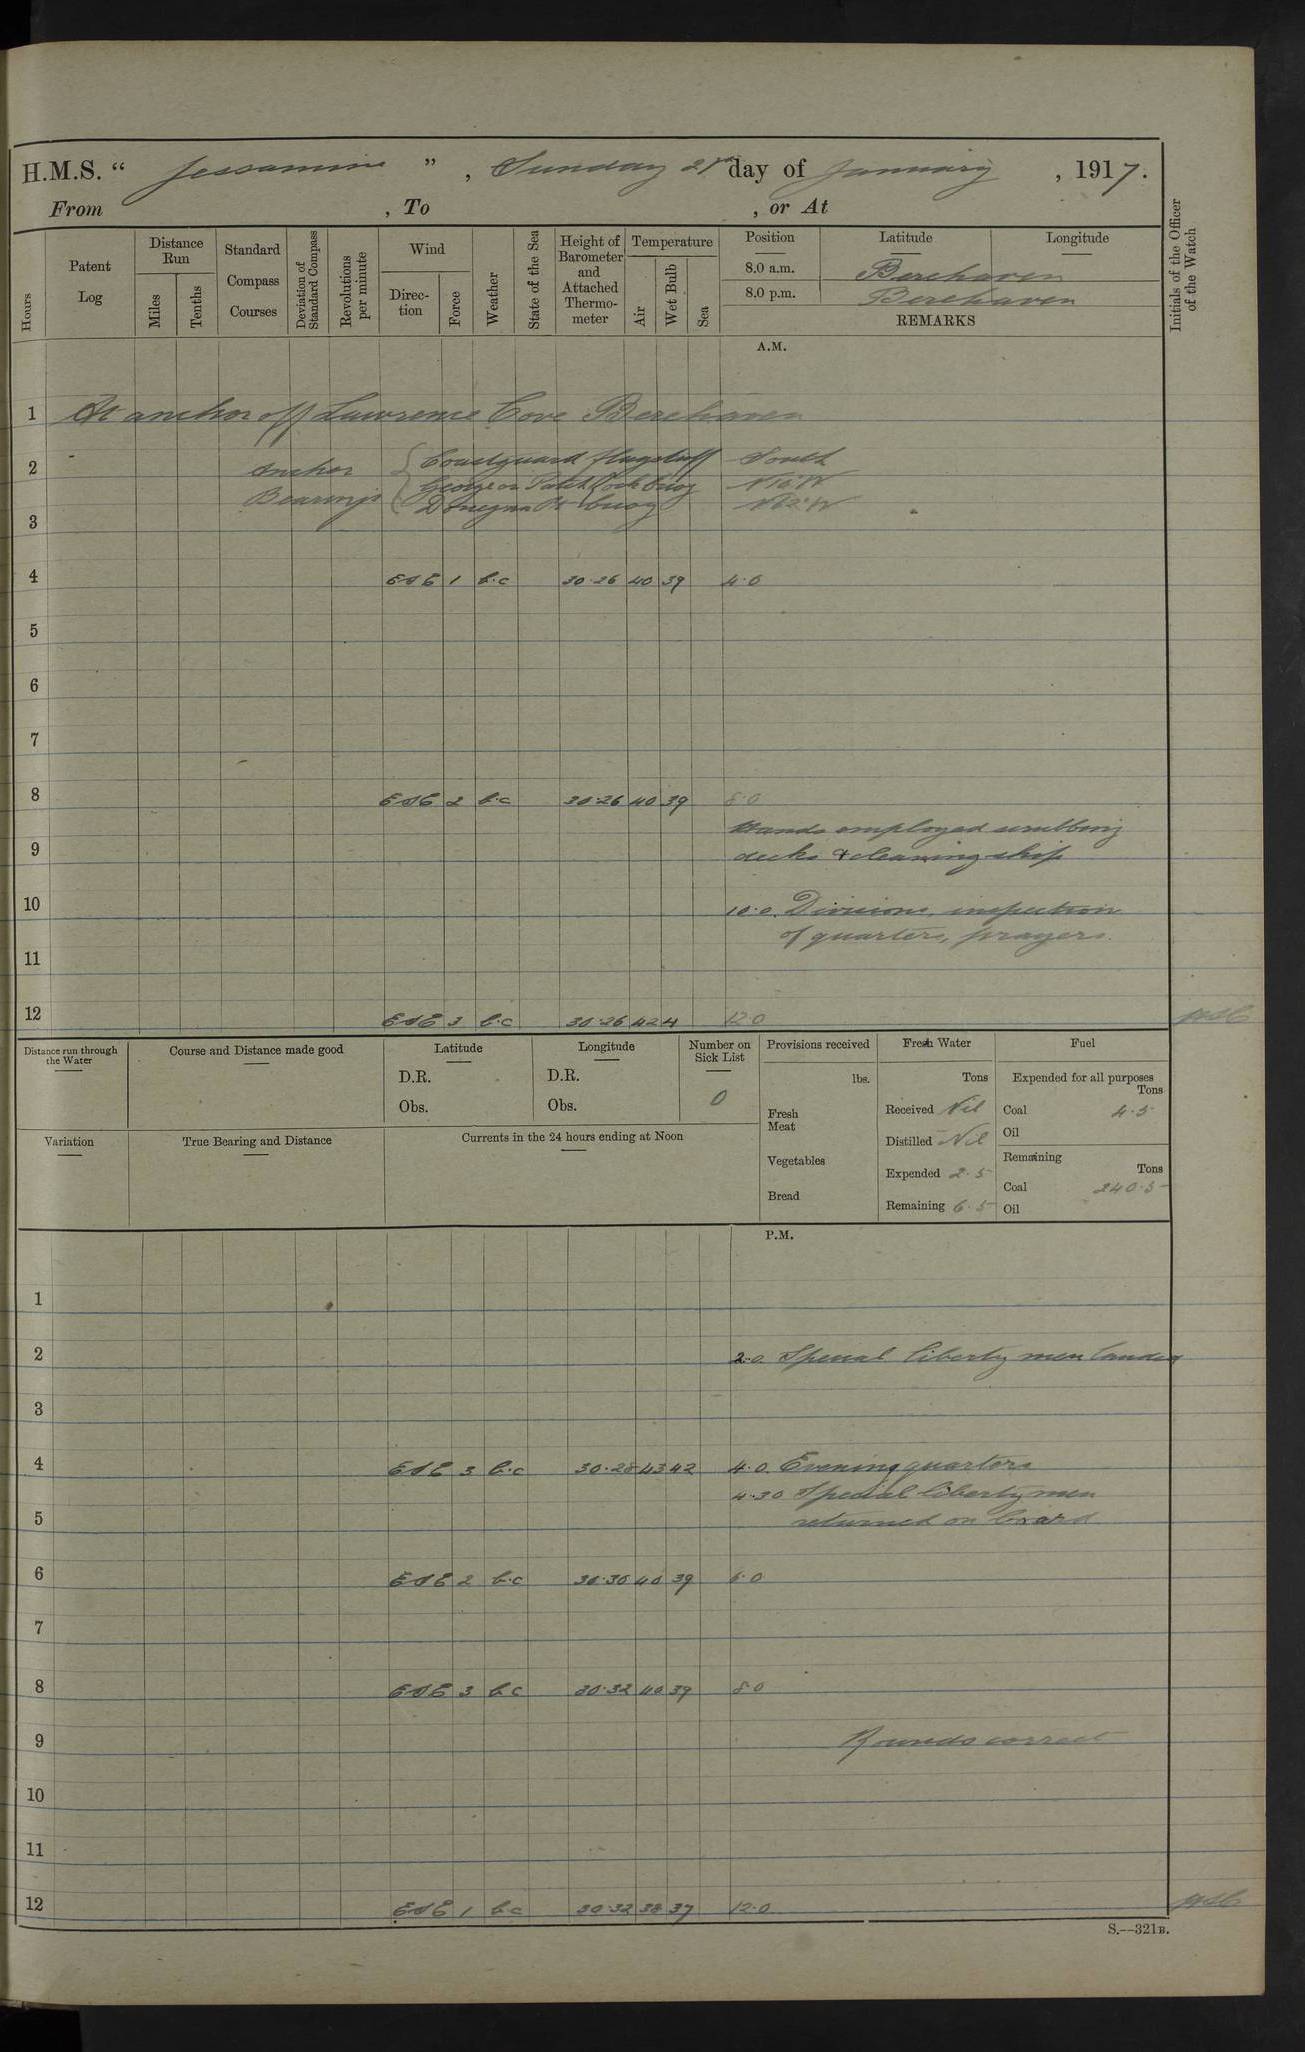 H.M.S. “ Jessamine ” , Sunday 21st day of January , 1917.
From , To , or At
Hours
Patent Log
Distance Run
Miles
Tenths
Standard Compass Courses
Deviation of Standard Compass
Revolutions per minute
Wind
Direction
Force
Weather
State of the Sea
Height of Barometer and Attached Thermometer
Temperature
Air
Wet Bulb
Sea
Position Latitude Longitude
8.0 a.m. Berehaven
8.0 p.m. Berehaven
REMARKS
Initials of the Officer of the Watch
A.M.
1 At anchor off Lawrence Cove Berehaven
2 Anchor { Coastguard flagstaff South
Bearings buoy N 16° W
3 buoy N 62° W
4 ESE 1 b.c 30.26 40 39 4.0
5
6
7
8 ESE 2 b.c 30.26 40 39 8.0
Hands employed scrubbing
9 decks & cleaning ship
10 10.0. Divisions, inspection
of quarters, prayers.
11
12 ESE 3 b.c 30.26 42 41 12.0
Distance run through the Water
Course and Distance made good
Latitude
D.R.
Obs.
Longitude
D.R.
Obs.
Number on Sick List
0
Variation
True Bearing and Distance
Currents in the 24 hours ending at Noon
Provisions received
lbs.
Fresh Meat
Vegetables
Bread
Fresh Water
Tons
Received Nil
Distilled Nil
Expended 2.5
Remaining 6.5
Fuel
Expended for all purposes
Tons
Coal 4.5
Oil
Remaining
Tons
Coal 240.5
Oil
P.M.
1
2 2.0. Special liberty men landed
3
4 ESE 3 b.c 30.28 43 42 4.0. Evening quarters
4.30 Special liberty men
5 returned on board
6 ESE 2 b.c 30.30 40 39 6.0
7
8 ESE 3 b.c 30.32 40 39 8.0
9 Rounds correct
10
11
12 ESE 1 b.c 30.32 38 37 12.0
S.—321B.